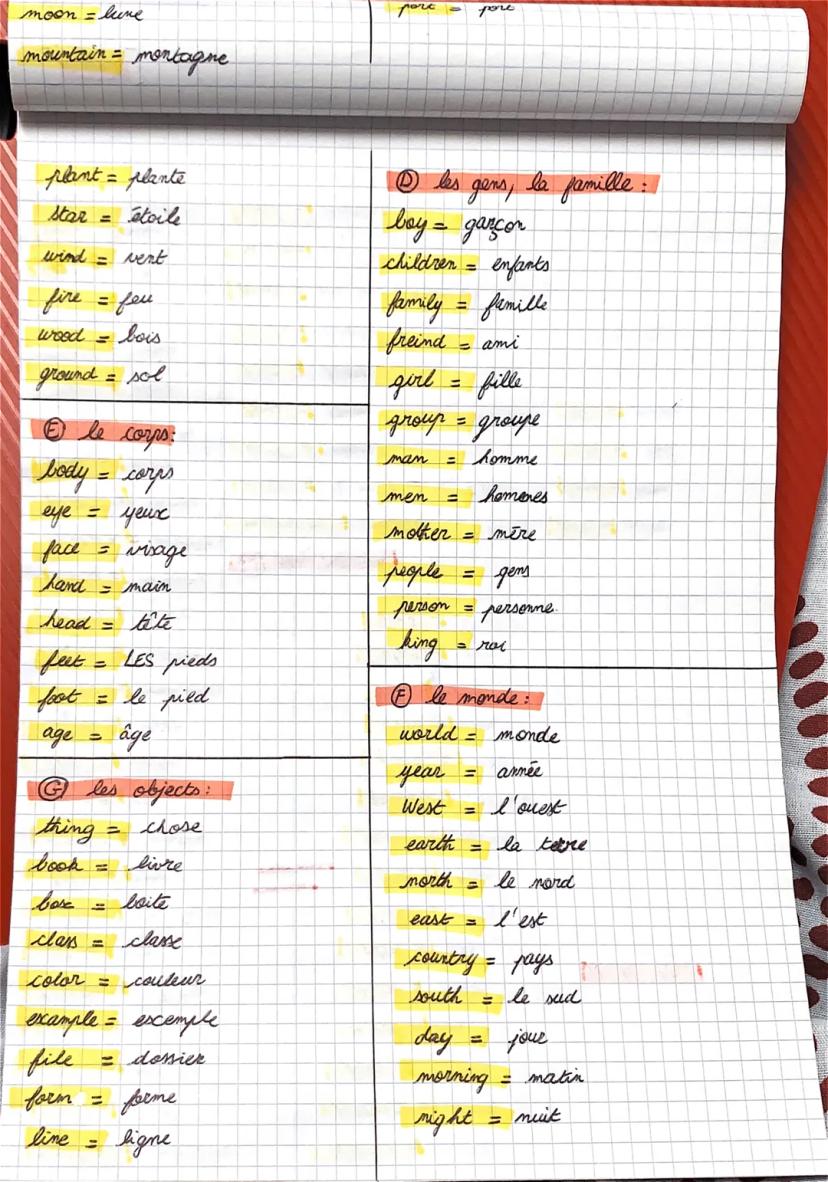 moon = lune
mountain = montagne
port = port
plant = plante
star = étoile
wind = vent
fire = feu
wood = bois
ground = sol
E le corps:
body = corps
eye = yeux
face = visage
hand = main
head = tête
feet = LES pieds
foot = le pied
age = âge
G les objects:
thing = chose
book = livre
box = boite
class = classe
color = couleur
example = escemple
file = dossier
form = forme
line = ligne
D les gens, la famille:
boy = garçon
children = enfants
family = famille
freind = ami
girl = fille
group = groupe
man = homme
men = hommes
mother = mère
people = gens
person = personne
king = roi
F le monde:
world = monde
year = année
West = l'ouest
earth = la terre
north = le nord
east = l'est
country = pays
south = le sud
day = jour
morning = matin
night = nuit